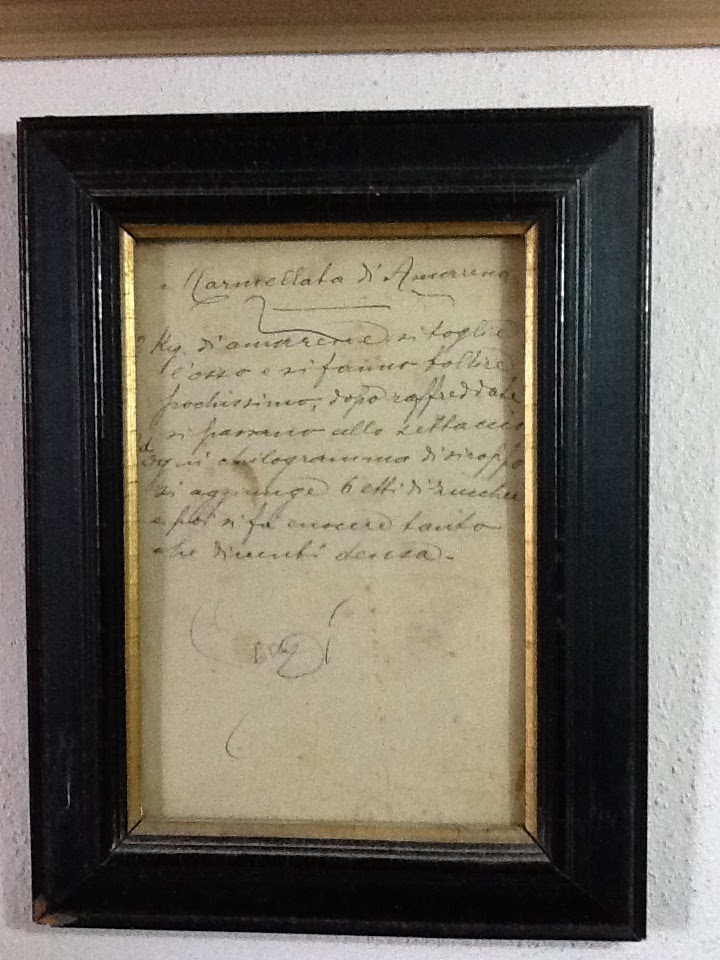 Marmellata di Amarena
Kg. di amarene si toglie
l'osso e si fanno bollire
pochissimo, dopo raffreddate
si passano allo settaccio
ogni chilogrammo di siroppo
si aggiunge 6 etti di zucchero
e poi si fa cuocere tanto
che diventi densa.